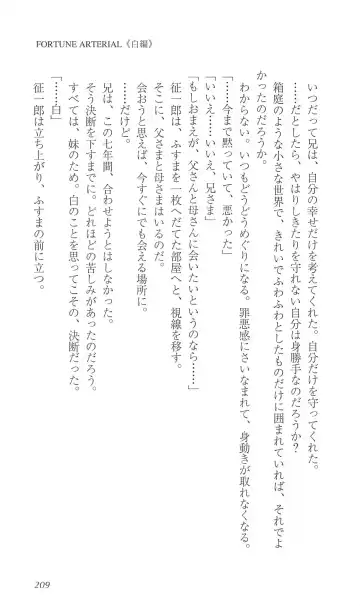 FORTUNE ARTERIAL《白編》
いつだって兄は、自分の幸せだけを考えてくれた。自分だけを守ってくれた。
……だとしたら、やはりしきたりを守れない自分は身勝手なのだろうか?
箱庭のような小さな世界で、きれいでふわふわとしたものだけに囲まれていれば、それでよ
かったのだろうか。
わからない。いつもどうどうめぐりになる。罪悪感にさいなまれて、身動きが取れなくなる。
「……今まで黙っていて、悪かった」
「いいえ……いいえ、兄さま」
「もしおまえが、父さんと母さんに会いたいというのなら……」
征一郎は、ふすまを一枚へだてた部屋へと、視線を移す。
そこに、父さまと母さまはいるのだ。
会おうと思えば、今すぐにでも会える場所に。
……だけど。
兄は、この七年間、会わせようとはしなかった。
そう決断を下すまでに。どれほどの苦しみがあったのだろう。
すべては、妹のため。白のことを思ってこその、決断だった。
「……白」
征一郎は立ち上がり、ふすまの前に立つ。
209